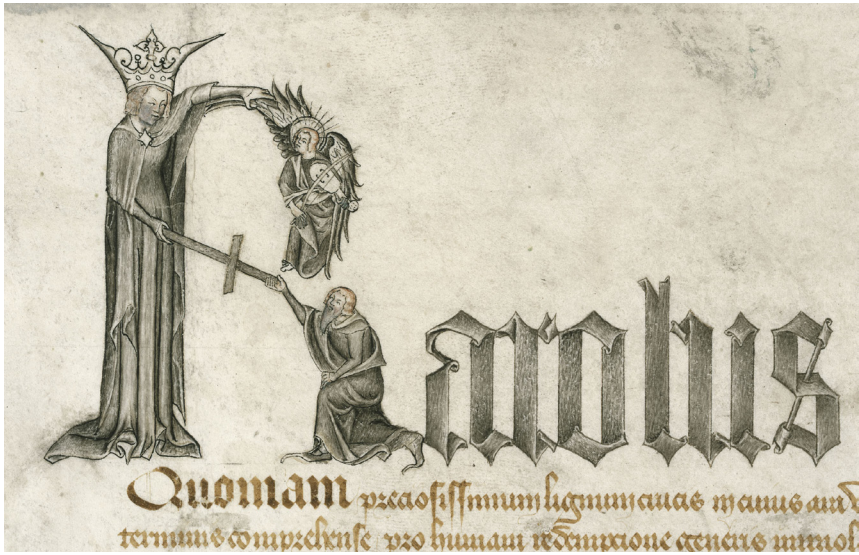 Karolus
Quoniam preciosissimum lignum crucis in cuius
terminus comprehense pro humani redempcione generis immol